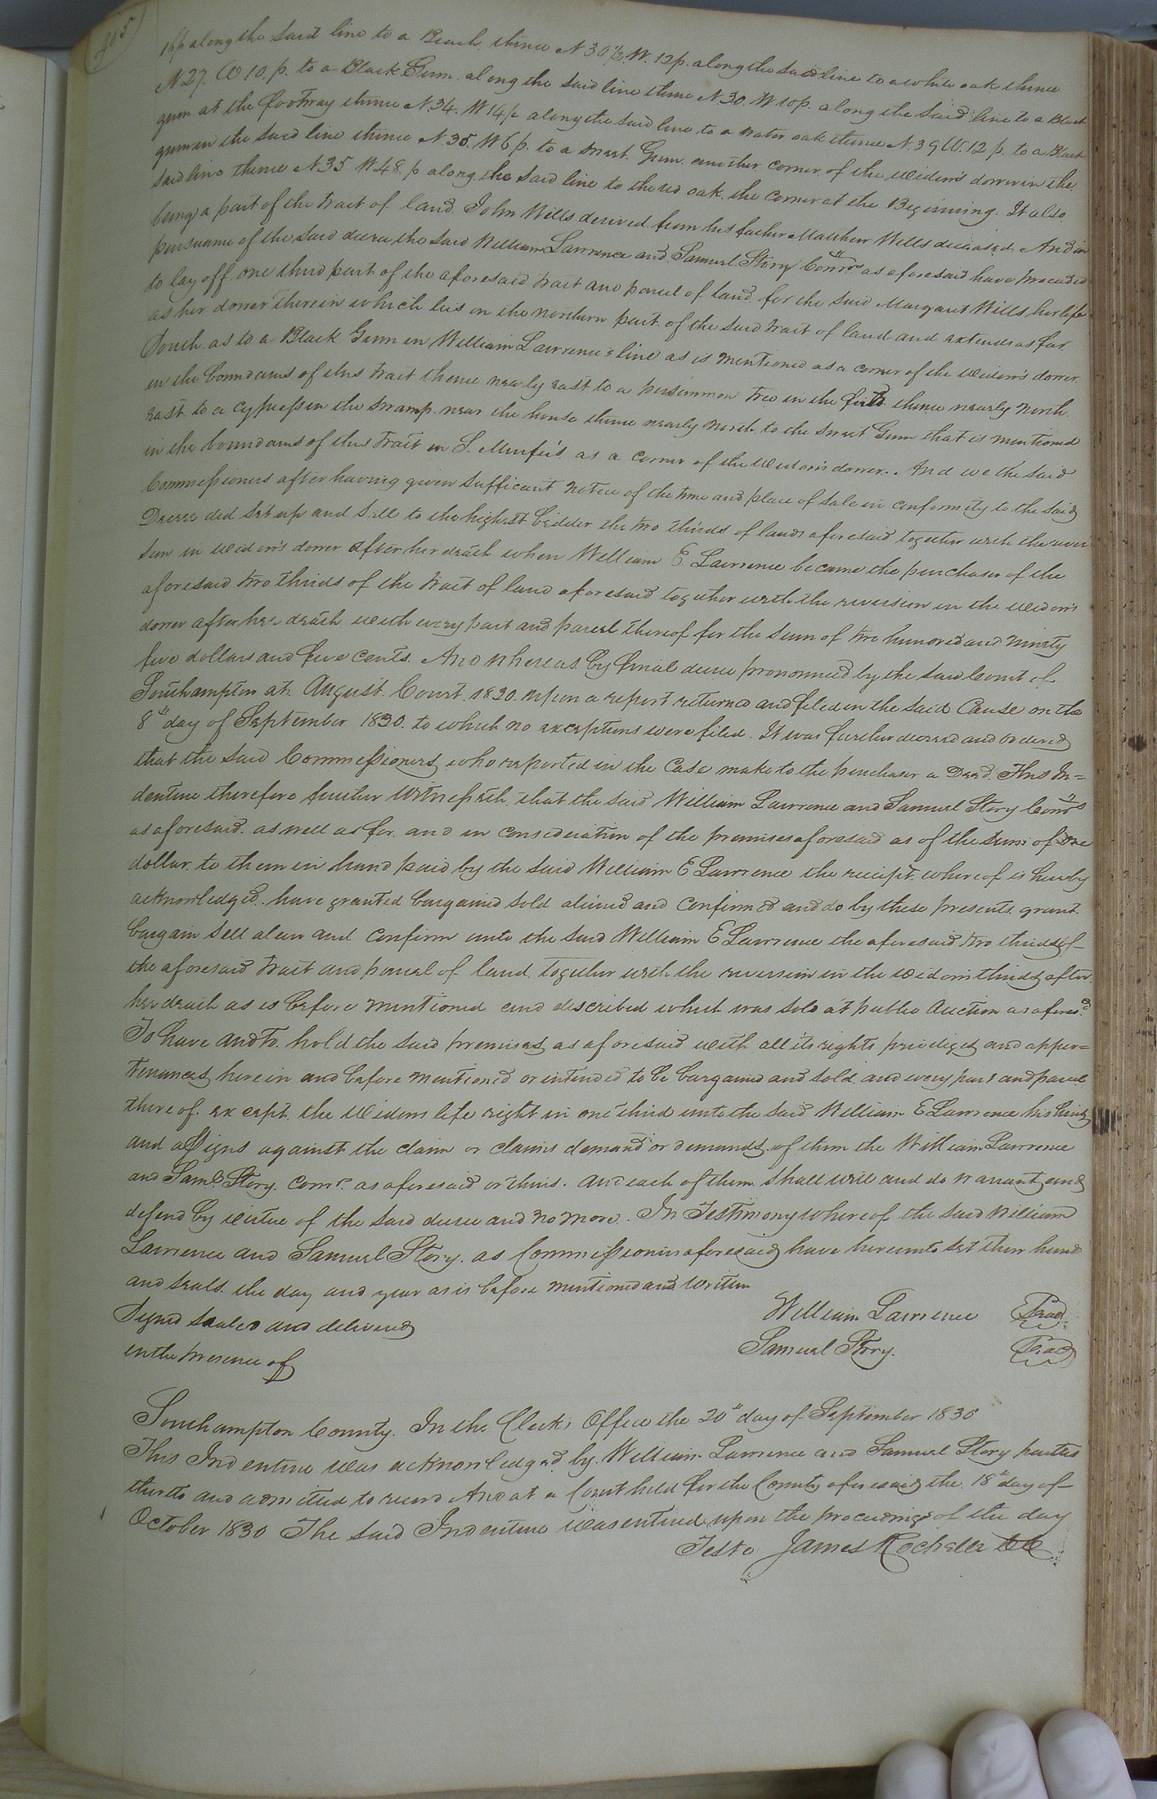 16p along the said line to a Beach, thence N 30½ W. 12p. along the said line to a white oak thence
N 27. W 10. p. to a Black Gum. along the said line thence N 30. W 10p. along the said line to a Black
gum at the footway thence N 34. W 14 p along the said line to a water oak thence N 39 W. 12 p. to a Black
gum in the said line thence N 35. W 6 p. to a Sweet Gum another corner of the widow's dower in the
said line thence N 35 W 48. p along the said line to the red oak. the corner at the Beginning. It also
being a part of the tract of land John Wills derived from his father Matthew Wills deceased. And in
pursuance of the said decree the said William Lawrence and Samuel Story Comrs as aforesaid have proceeded
to lay off one third part of the aforesaid tract and parcel of land for the said Margaret Wills, her life
as her dower therein which lies on the northern part of the said tract of land and extends as far
South as to a Black Gum in William Lawrence's line as is mentioned as a corner of the widow's dower
in the boundaries of this tract thence nearly east to a persimmon tree in the field thence nearly north
east to a cypress in the swamp near the house thence nearly north to the Sweet Gum that is mentioned
in the boundaries of this tract in S. Murfee's as a corner of the widow's dower. And we the said
Commissioners after having given sufficient notice of the time and place of sale in conformity to the said
Decree did set up and sell to the highest bidder the two thirds of lands aforesaid together with the rever
sion in widow's dower after her death when William E Lawrence became the purchaser of the
aforesaid two thirds of the tract of land aforesaid together with the reversion in the widow's
dower after her death with every part and parcel thereof for the sum of two hundred and ninety
five dollars and five cents. And whereas by final decree pronounced by the said Court of
Southampton at August Court 1830. upon a report returned and filed in the said Cause on the
8th day of September 1830. to which no exceptions were filed. It was further decreed and ordered
that the said Commissioners who reported in the Case make to the purchaser a Deed. This In=
denture therefore further Witnesseth, that the said William Lawrence and Samuel Story Comrs
as aforesaid. as well as for and in consideration of the premises aforesaid as of the sum of one
dollar to them in hand paid by the said William E Lawrence the receipt whereof is hereby
acknowledged. have granted bargained sold aliened and confirmed and do by these presents grant
bargain sell alien and confirm unto the said William E Lawrence the aforesaid two thirds of
the aforesaid tract and parcel of land, together with the reversion in the widow's thirds after
her death as is before mentioned and described which was sold at public Auction as aforesd
To have and to hold the said premises as aforesaid with all its rights privileges and appur=
tenances herein and before mentioned or intended to be bargained and sold and every part and parcel
thereof. except the widows life right in one third unto the said William E Lawrence his heirs
and assigns against the claim or claims demand or demands of them the William Lawrence
and Saml Story. Comrs. as aforesaid or theirs. and each of them shall will and do warrant and
defend by virtue of the said decree and no more. In Testimony whereof the said William
Lawrence and Samuel Story. as Commissioners aforesaid have hereunto set their hands
and seals the day and year as is before mentioned and written
Signed Sealed and delivered William Lawrence Seal
in the presence of Samuel Story. Seal
Southampton County. In the Clerk's Office the 20th day of September 1830
This Indenture was acknowledged by William Lawrence and Samuel Story parties
thereto and admitted to record And at a Court held for the County aforesaid the 18th day of
October 1830 The said Indenture was entered upon the proceedings of the day
Teste James Rochelle CC